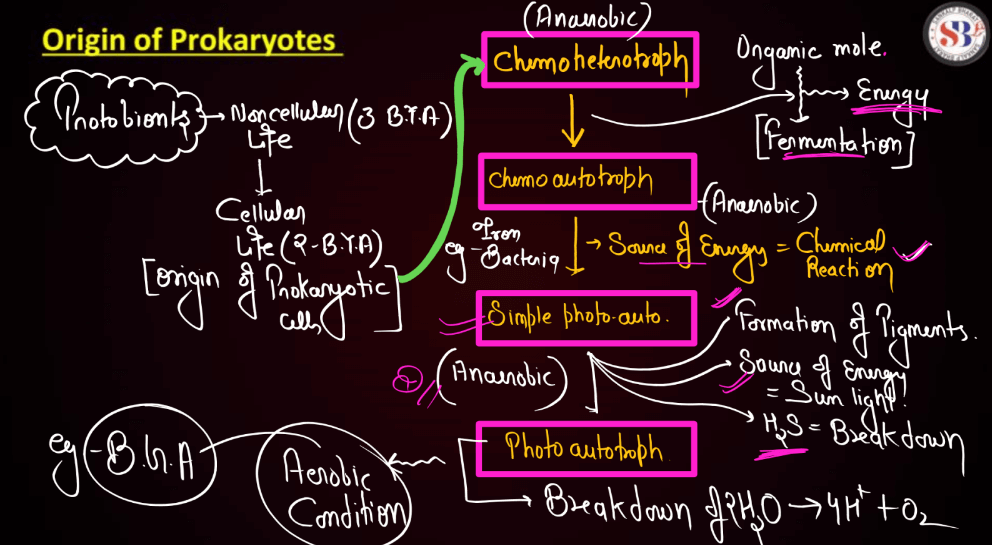 Origin of Prokaryotes
SB
Protobionts → Noncellular (3 B.Y.A)
Life
Cellular
Life (2-B.Y.A)
[Origin of Prokaryotic
cells]
(Anaerobic)
Chemoheterotroph
Organic mole.
→ Energy
[Fermentation]
Chemoautotroph
(Anaerobic)
eg - Iron
Bacteria
→ Source of Energy = Chemical
Reaction
Simple photo-auto.
(Anaerobic)
Formation of Pigments.
Source of Energy
= Sun light!
H₂S = Breakdown
Photoautotroph
→ Breakdown of 2H₂O → 4H⁺ + O₂
Aerobic
Condition
eg - B.G.A